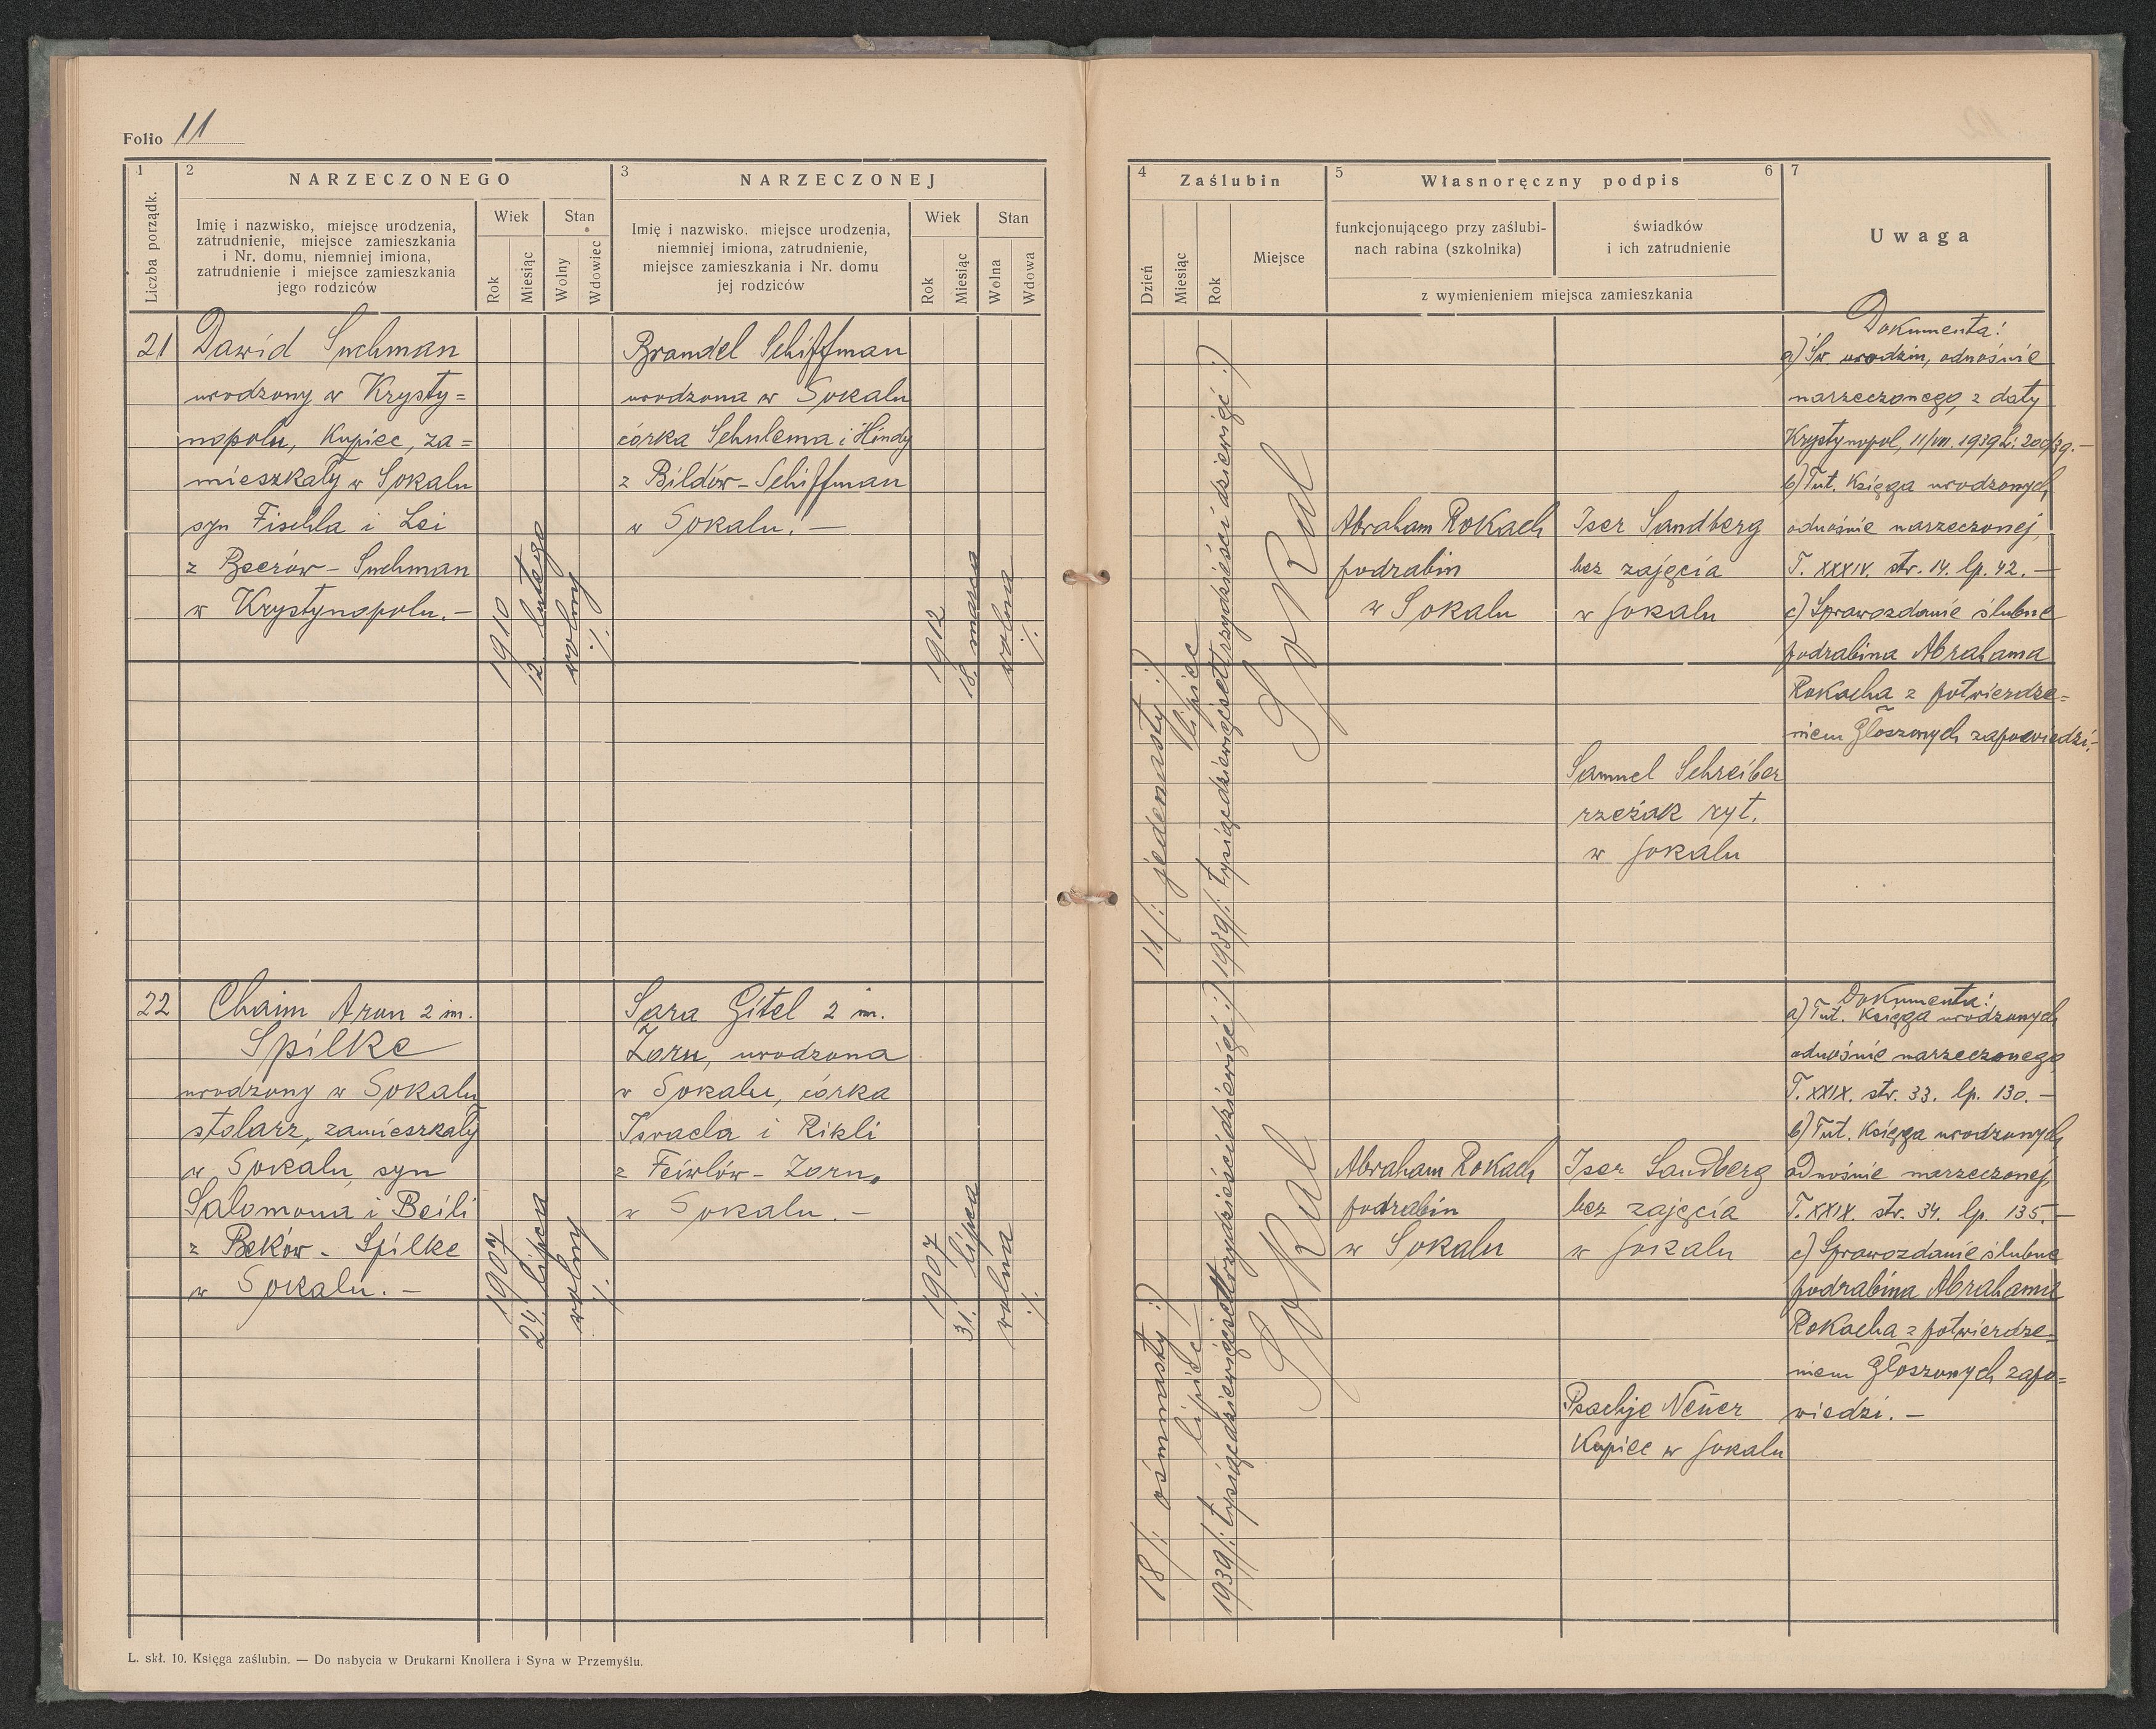 Folio 11
1
2
NARZECZONEGO
3
NARZECZONEJ
Liczba porządk.
Imię i nazwisko, miejsce urodzenia,
zatrudnienie, miejsce zamieszkania
i Nr. domu, niemniej imiona,
zatrudnienie i miejsce zamieszkania
jego rodziców
Wiek
Stan
Rok
Miesiąc
Wolny
Wdowiec
Imię i nazwisko. miejsce urodzenia,
niemniej imiona, zatrudnienie,
miejsce zamieszkania i Nr. domu
jej rodziców
Wiek
Stan
Rok
Miesiąc
Wolna
Wdowa
21
Dawid Suchman
urodzony w Krysty=
nopolu, Kupiec, za=
mieszkały w Sokalu
syn Fischla i Lei
z Beerów - Suchman
w Krystynopolu. -
1910
12 lutego
wolny
%
Brandel Schiffman
urodzona w Sokalu
córka Schulema i Hindy
z Bildów - Schiffman
w Sokalu. -
1912
18. marca
wolna
%
22
Chaim Aron 2 im.
Spilke
urodzony w Sokalu
stolarz, zamieszkały
w Sokalu, syn
Salomona i Beili
z Beków - Spilke
w Sokalu. -
1907
24. lipca
wolny
%
Sara Gitel 2 im.
Zorn, urodzona
w Sokalu, córka
Israela i Rikli
z Feiwlów - Zorn,
w Sokalu. -
1907
31. lipca
wolna
%
L. skł. 10. Księga zaślubin. — Do nabycia w Drukarni Knollera i Syna w Przemyślu.
4
Zaślubin
5
Własnoręczny podpis
6
7
Uwaga
Dzień
Miesiąc
Rok
Miejsce
funkcjonującego przy zaślubi-
nach rabina (szkolnika)
świadków
i ich zatrudnienie
z wymienieniem miejsca zamieszkania
11/: jedenasty :/
lipiec
1939/: tysiącdziewięćsettrzydzieścidziewięć :/
Sokal
Abraham Rokach
podrabin
w Sokalu
Iser Sandberg
bez zajęcia
w Sokalu
Samuel Schreiber
rzeżak ryt.
w Sokalu
Dokumenta:
a) Św. urodzin, odnośnie
narzeczonego, z daty
Krystynopol, 11/VII. 1939 L: 200/39. -
b) Tut. Księga urodzonych
odnośnie narzeczonej,
T. XXXIV. str. 14. lp. 42. -
c) Sprawozdanie ślubne
podrabina Abrahama
Rokacha z potwierdze=
niem głoszonych zapowiedzi. -
18/: ośmnasty :/
lipiec
1939/: tysiącdziewięćsettrzydzieścidziewięć :/
Sokal
Abraham Rokach
podrabin
w Sokalu
Iser Sandberg
bez zajęcia
w Sokalu
Psachje Neuer
Kupiec w Sokalu
Dokumenta:
a) Tut. Księga urodzonych
odnośnie narzeczonego
T. XXIX. str. 33. lp. 130. -
b) Tut. Księga urodzonych
odnośnie narzeczonej,
T. XXIX. str. 34. lp. 135. -
c) Sprawozdanie ślubne
podrabina Abrahama
Rokacha z potwierdze=
niem głoszonych zapo=
wiedzi. -